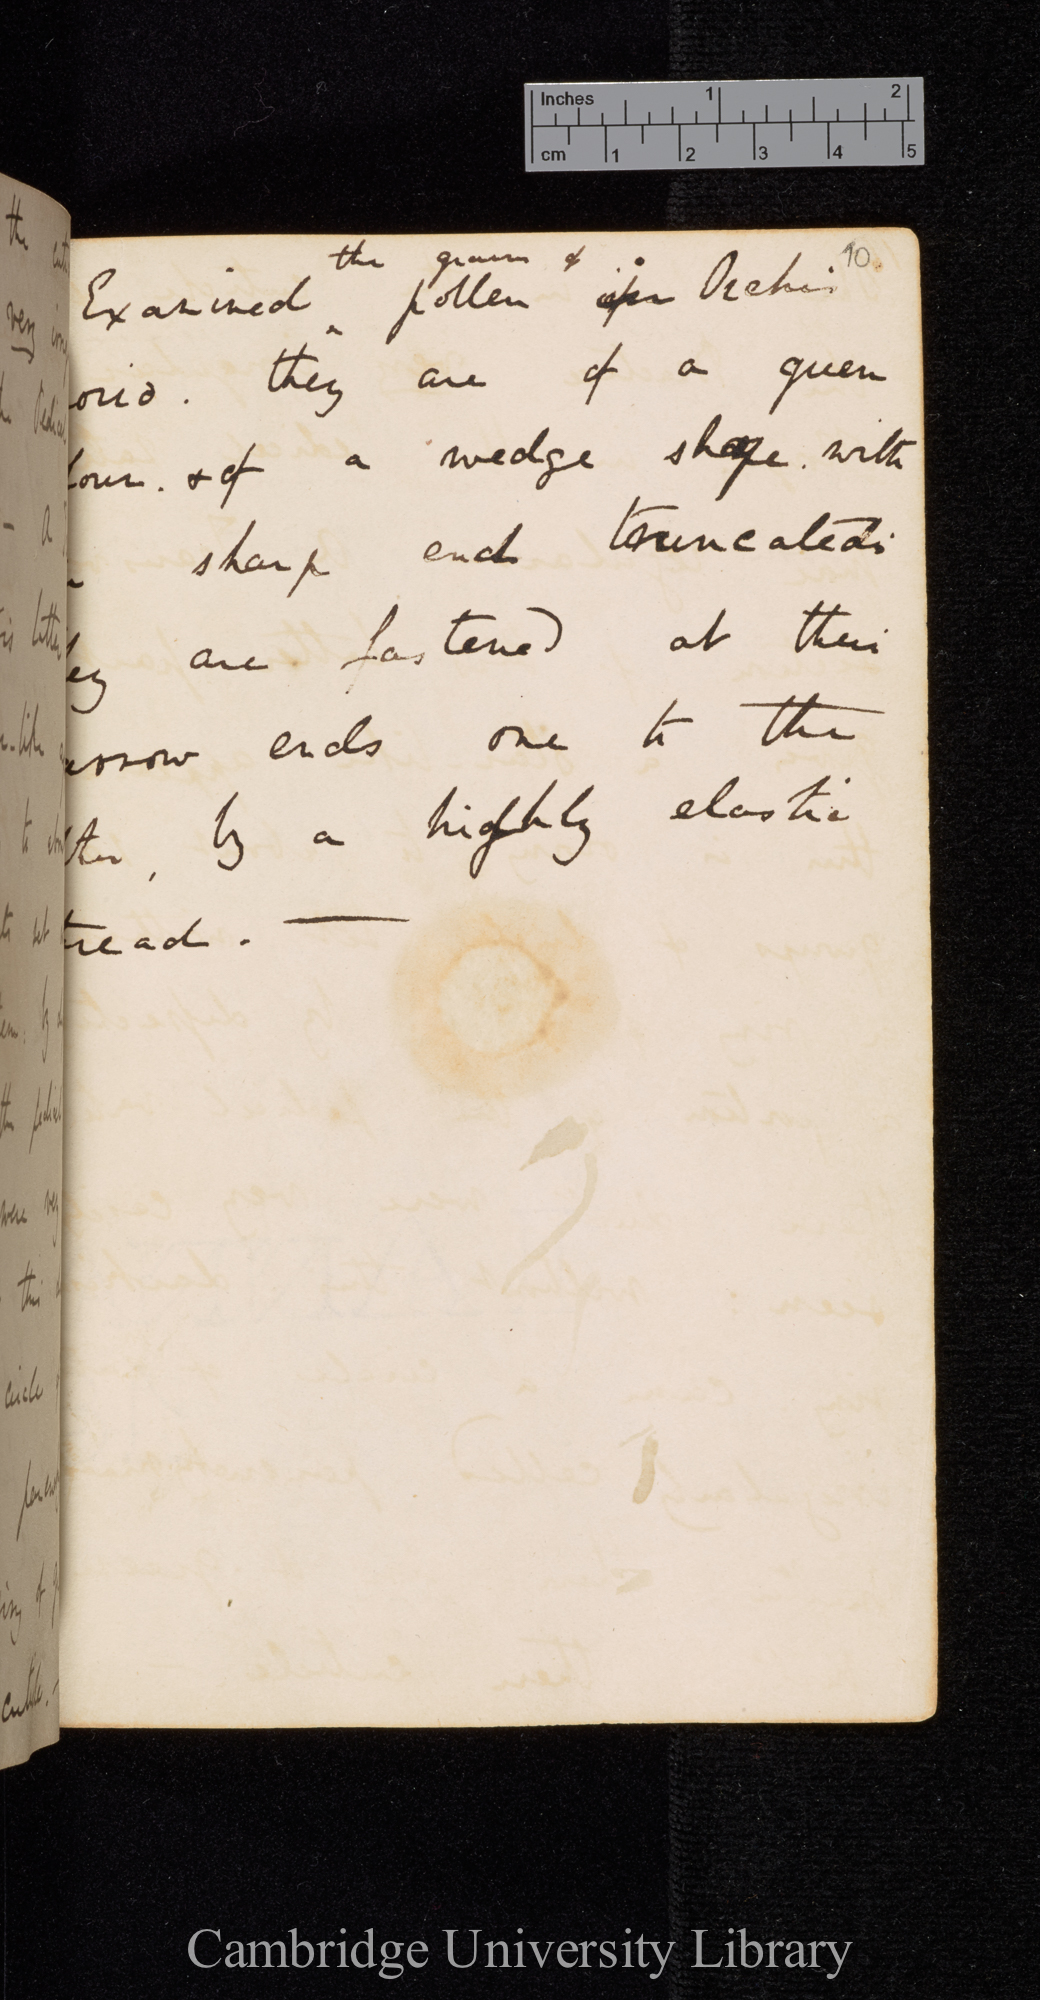 Inches 1 2
cm 1 2 3 4 5
10.
the grains of
Examined pollen in Orchis
orio. they are of a green
lour. & of a wedge shape. with
sharp end truncated;
ey are fastened at their
arrow ends one to the
ther, by a highly elastic
read. —
the
very
this
circle
Cambridge University Library